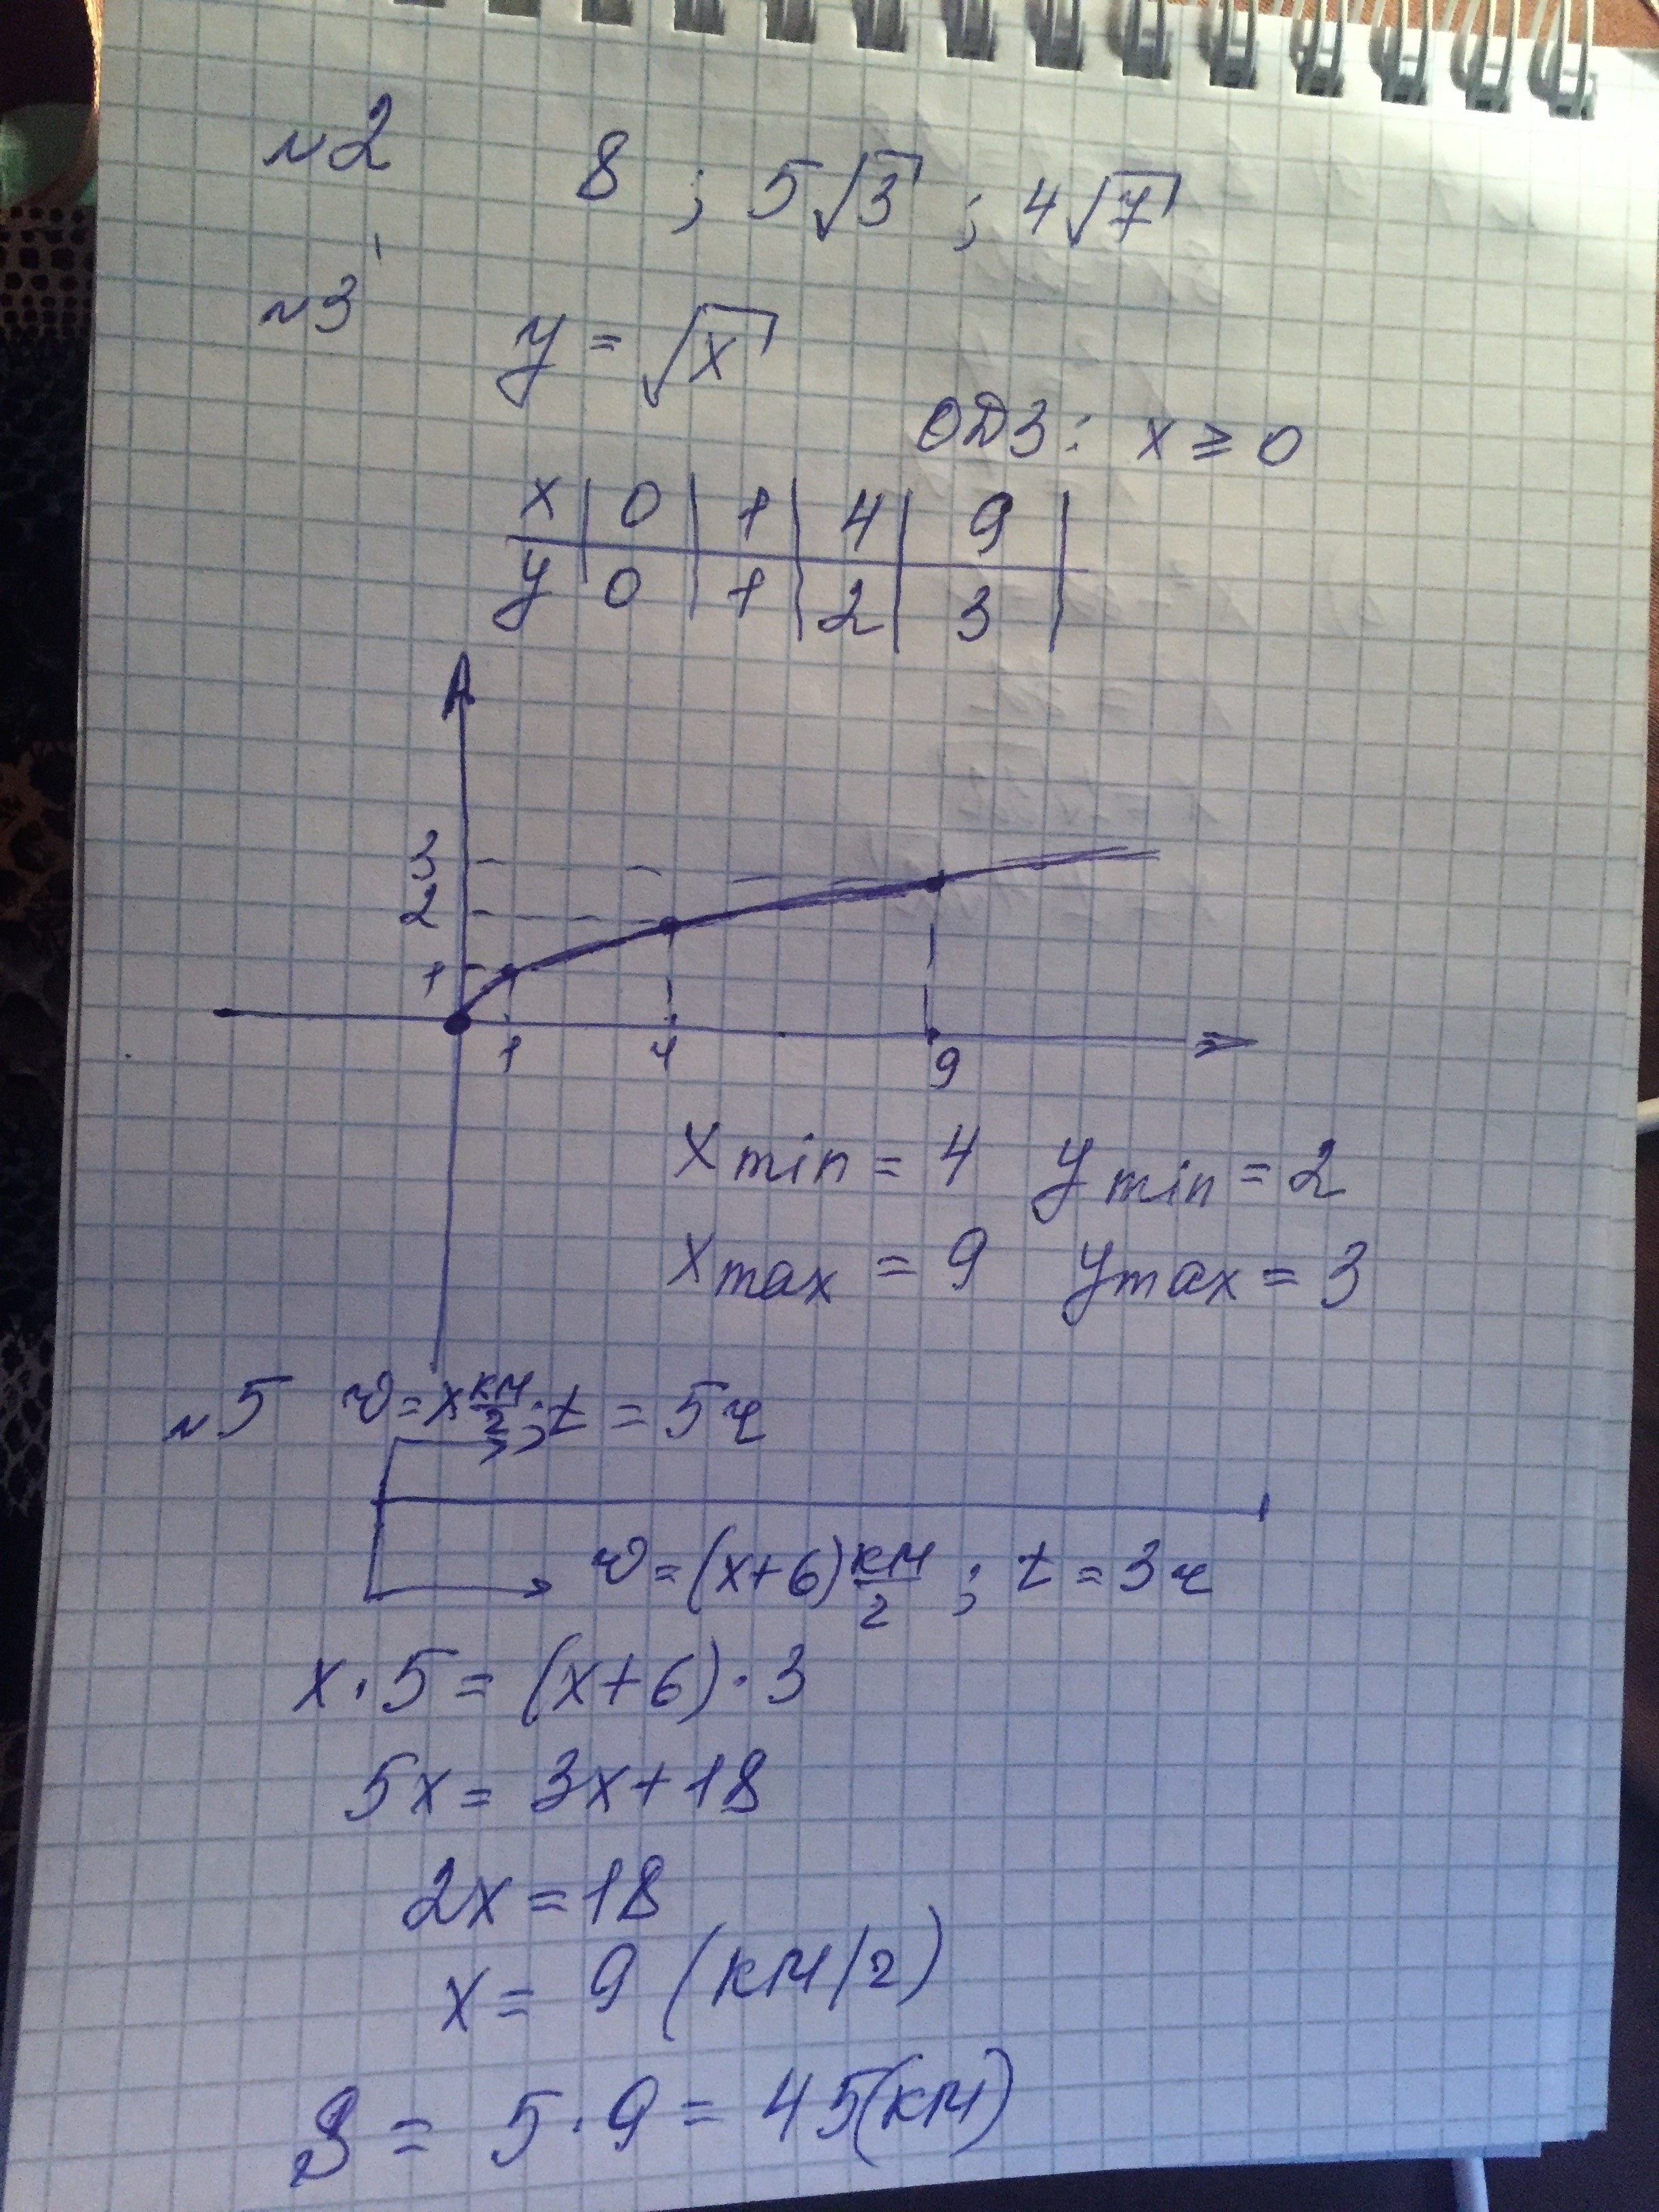 №2 8 ; 5√3 ; 4√7
№3 y = √x
ОДЗ: x ≥ 0
x | 0 | 1 | 4 | 9 |
y | 0 | 1 | 2 | 3 |
3
2
1
1 4 9
x min = 4 y min = 2
x max = 9 y max = 3
№5 v = x км/г ; t = 5ч
v = (x+6) км/г ; t = 3ч
x · 5 = (x+6) · 3
5x = 3x + 18
2x = 18
x = 9 (км/г)
S = 5 · 9 = 45 (км)